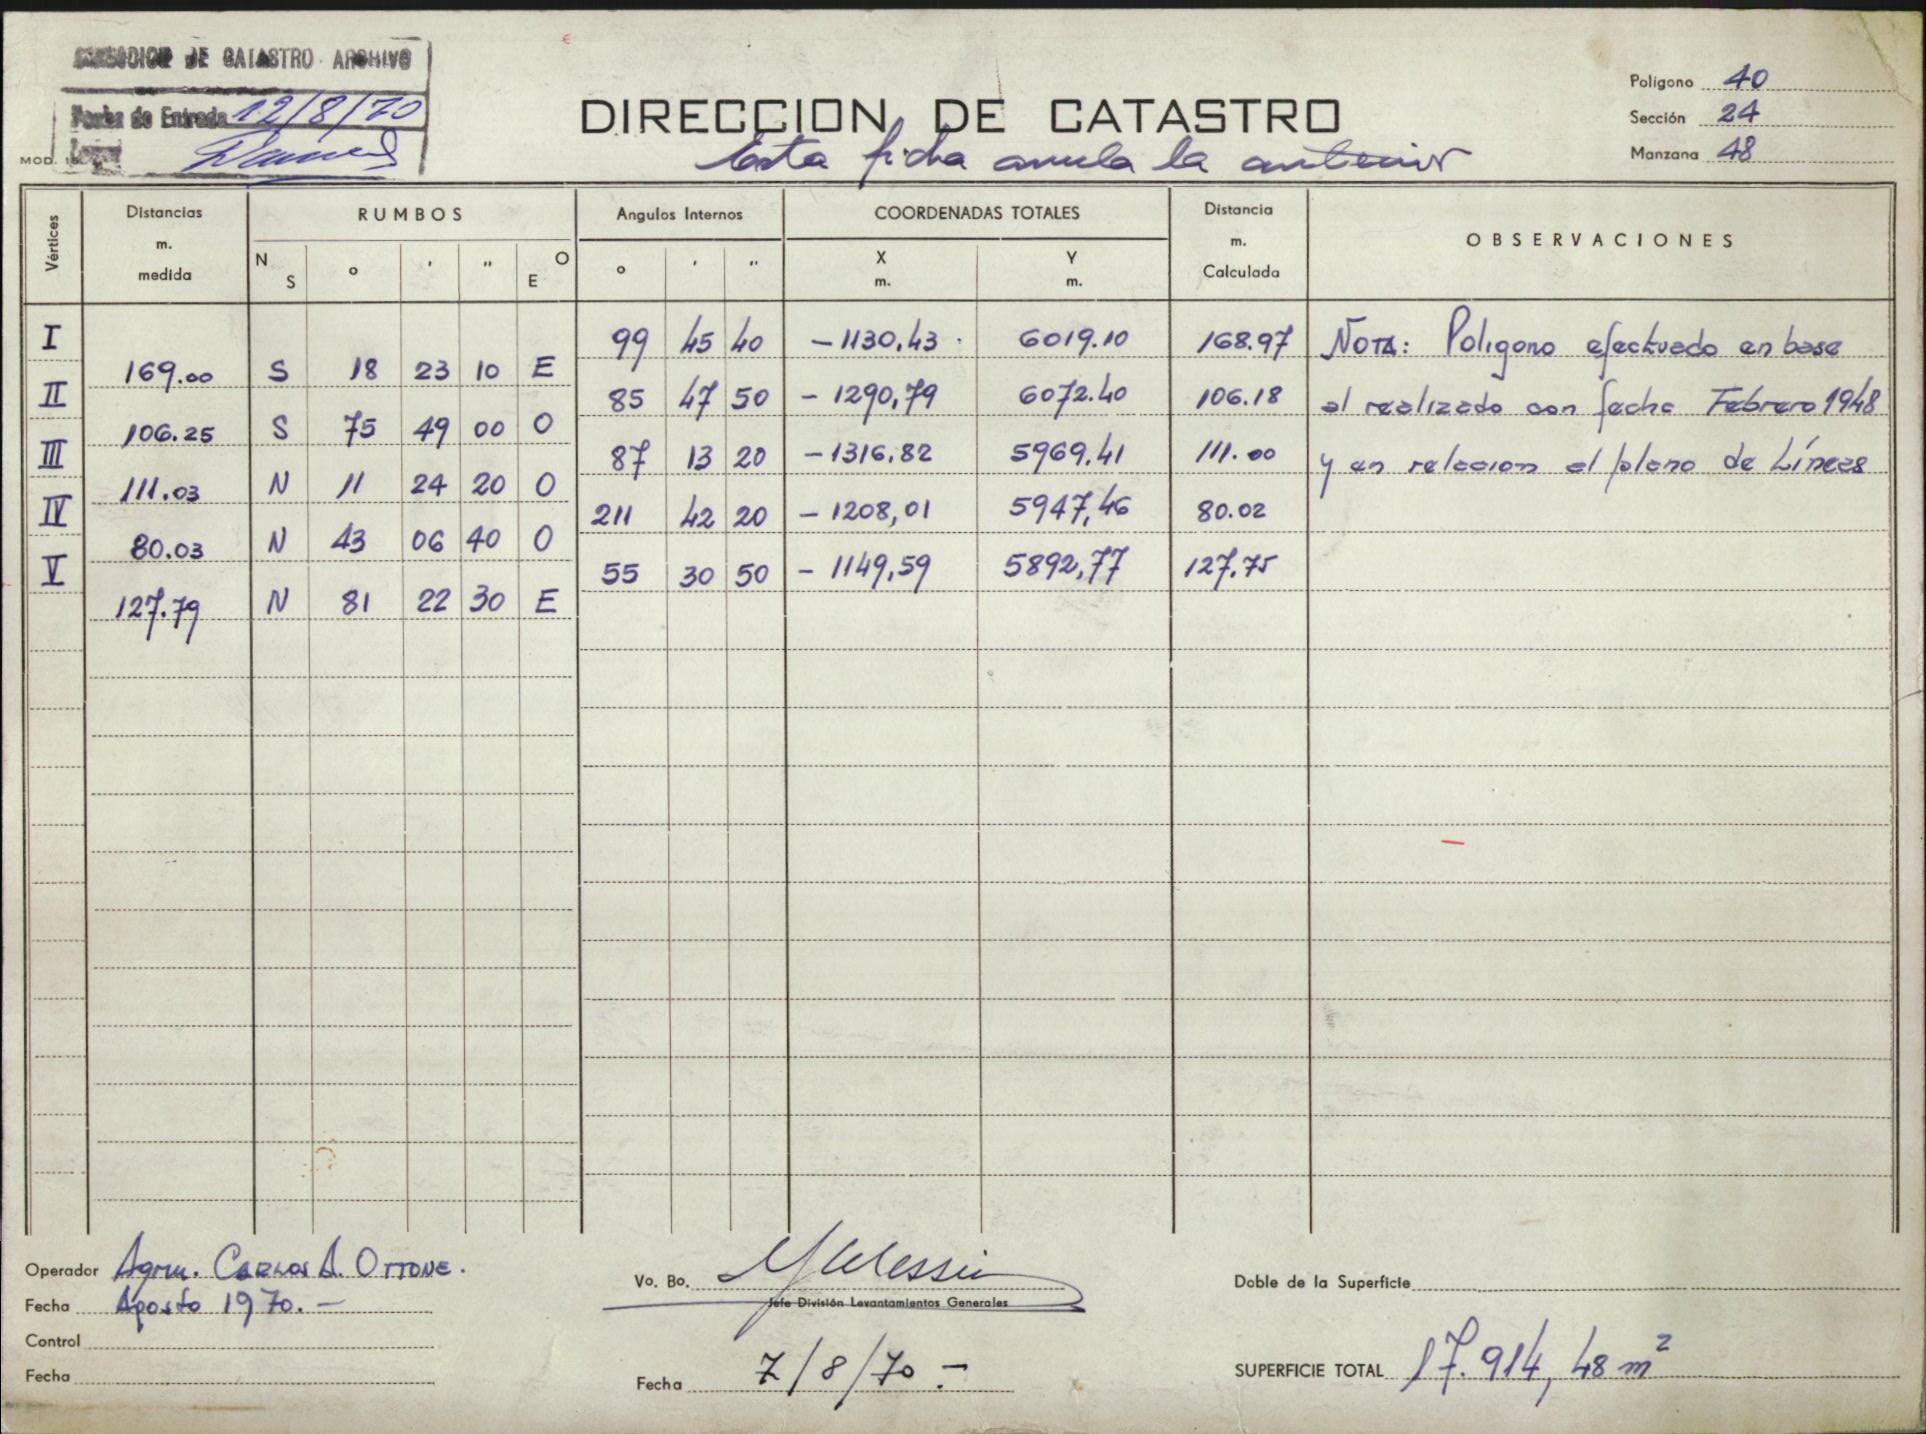 DE CATASTRO ARCHIVO
Fecha de Entrada 12/8/70
MOD.
DIRECCION DE CATASTRO
Esta ficha anula la anterior
Polígono 40
Sección 24
Manzana 48
Vértices Distancias m. medida RUMBOS N S o ' " O E Angulos Internos o ' " COORDENADAS TOTALES X m. Y m. Distancia m. Calculada OBSERVACIONES
I 99 45 40 -1130,43 6019.10 168.97 NOTA: Poligono efectuado en base
169.00 S 18 23 10 E
II 85 47 50 -1290,79 6072.40 106.18 al realizado con fecha Febrero 1948
106.25 S 75 49 00 O
III 87 13 20 -1316,82 5969.41 111.00 y en relacion al plano de Líneas
111.03 N 11 24 20 O
IV 211 42 20 -1208,01 5947,46 80.02
80.03 N 43 06 40 O
V 55 30 50 -1149,59 5892,77 127.75
127.79 N 81 22 30 E
Operador Agrm. CARLOS A. OTTONE.
Fecha Agosto 1970.-
Control
Fecha
Vo. Bo.
Jefe División Levantamientos Generales
Fecha 7/8/70.-
Doble de la Superficie
SUPERFICIE TOTAL 17.914,48 m²